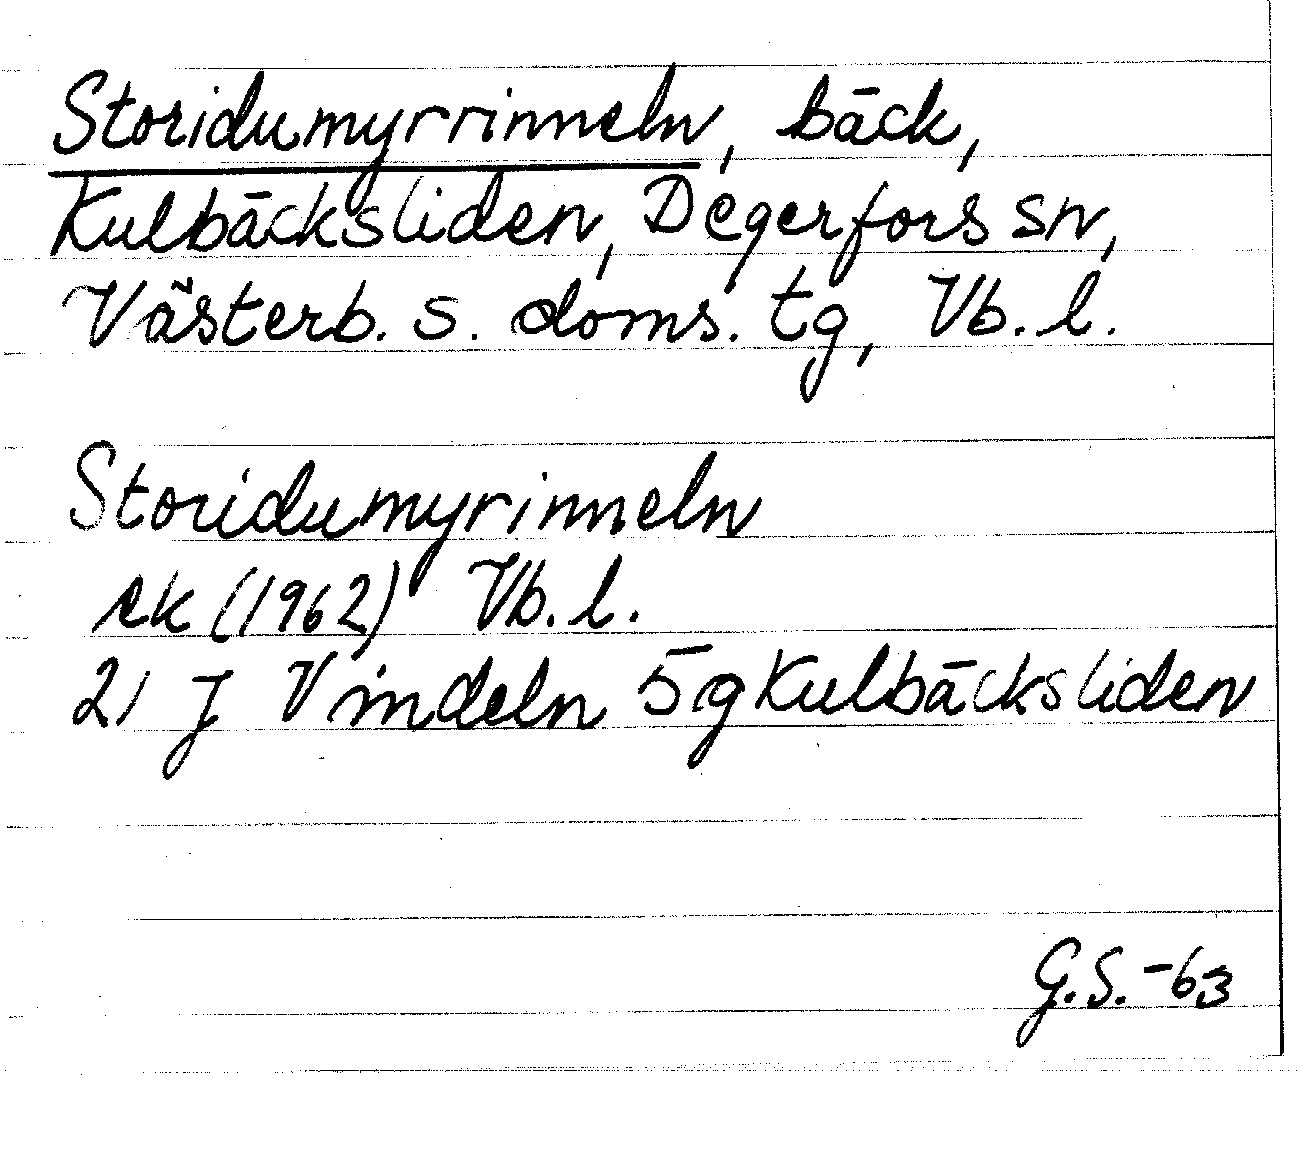 Storidumyrrinneln, bäck,
Kulbäcksliden, Degerfors sn,
Västerb. s. doms. tg, Vb. l.
Storidumyrinneln
ek (1962) Vb. l.
21 J Vindeln 5g Kulbäcksliden
G.S. -63